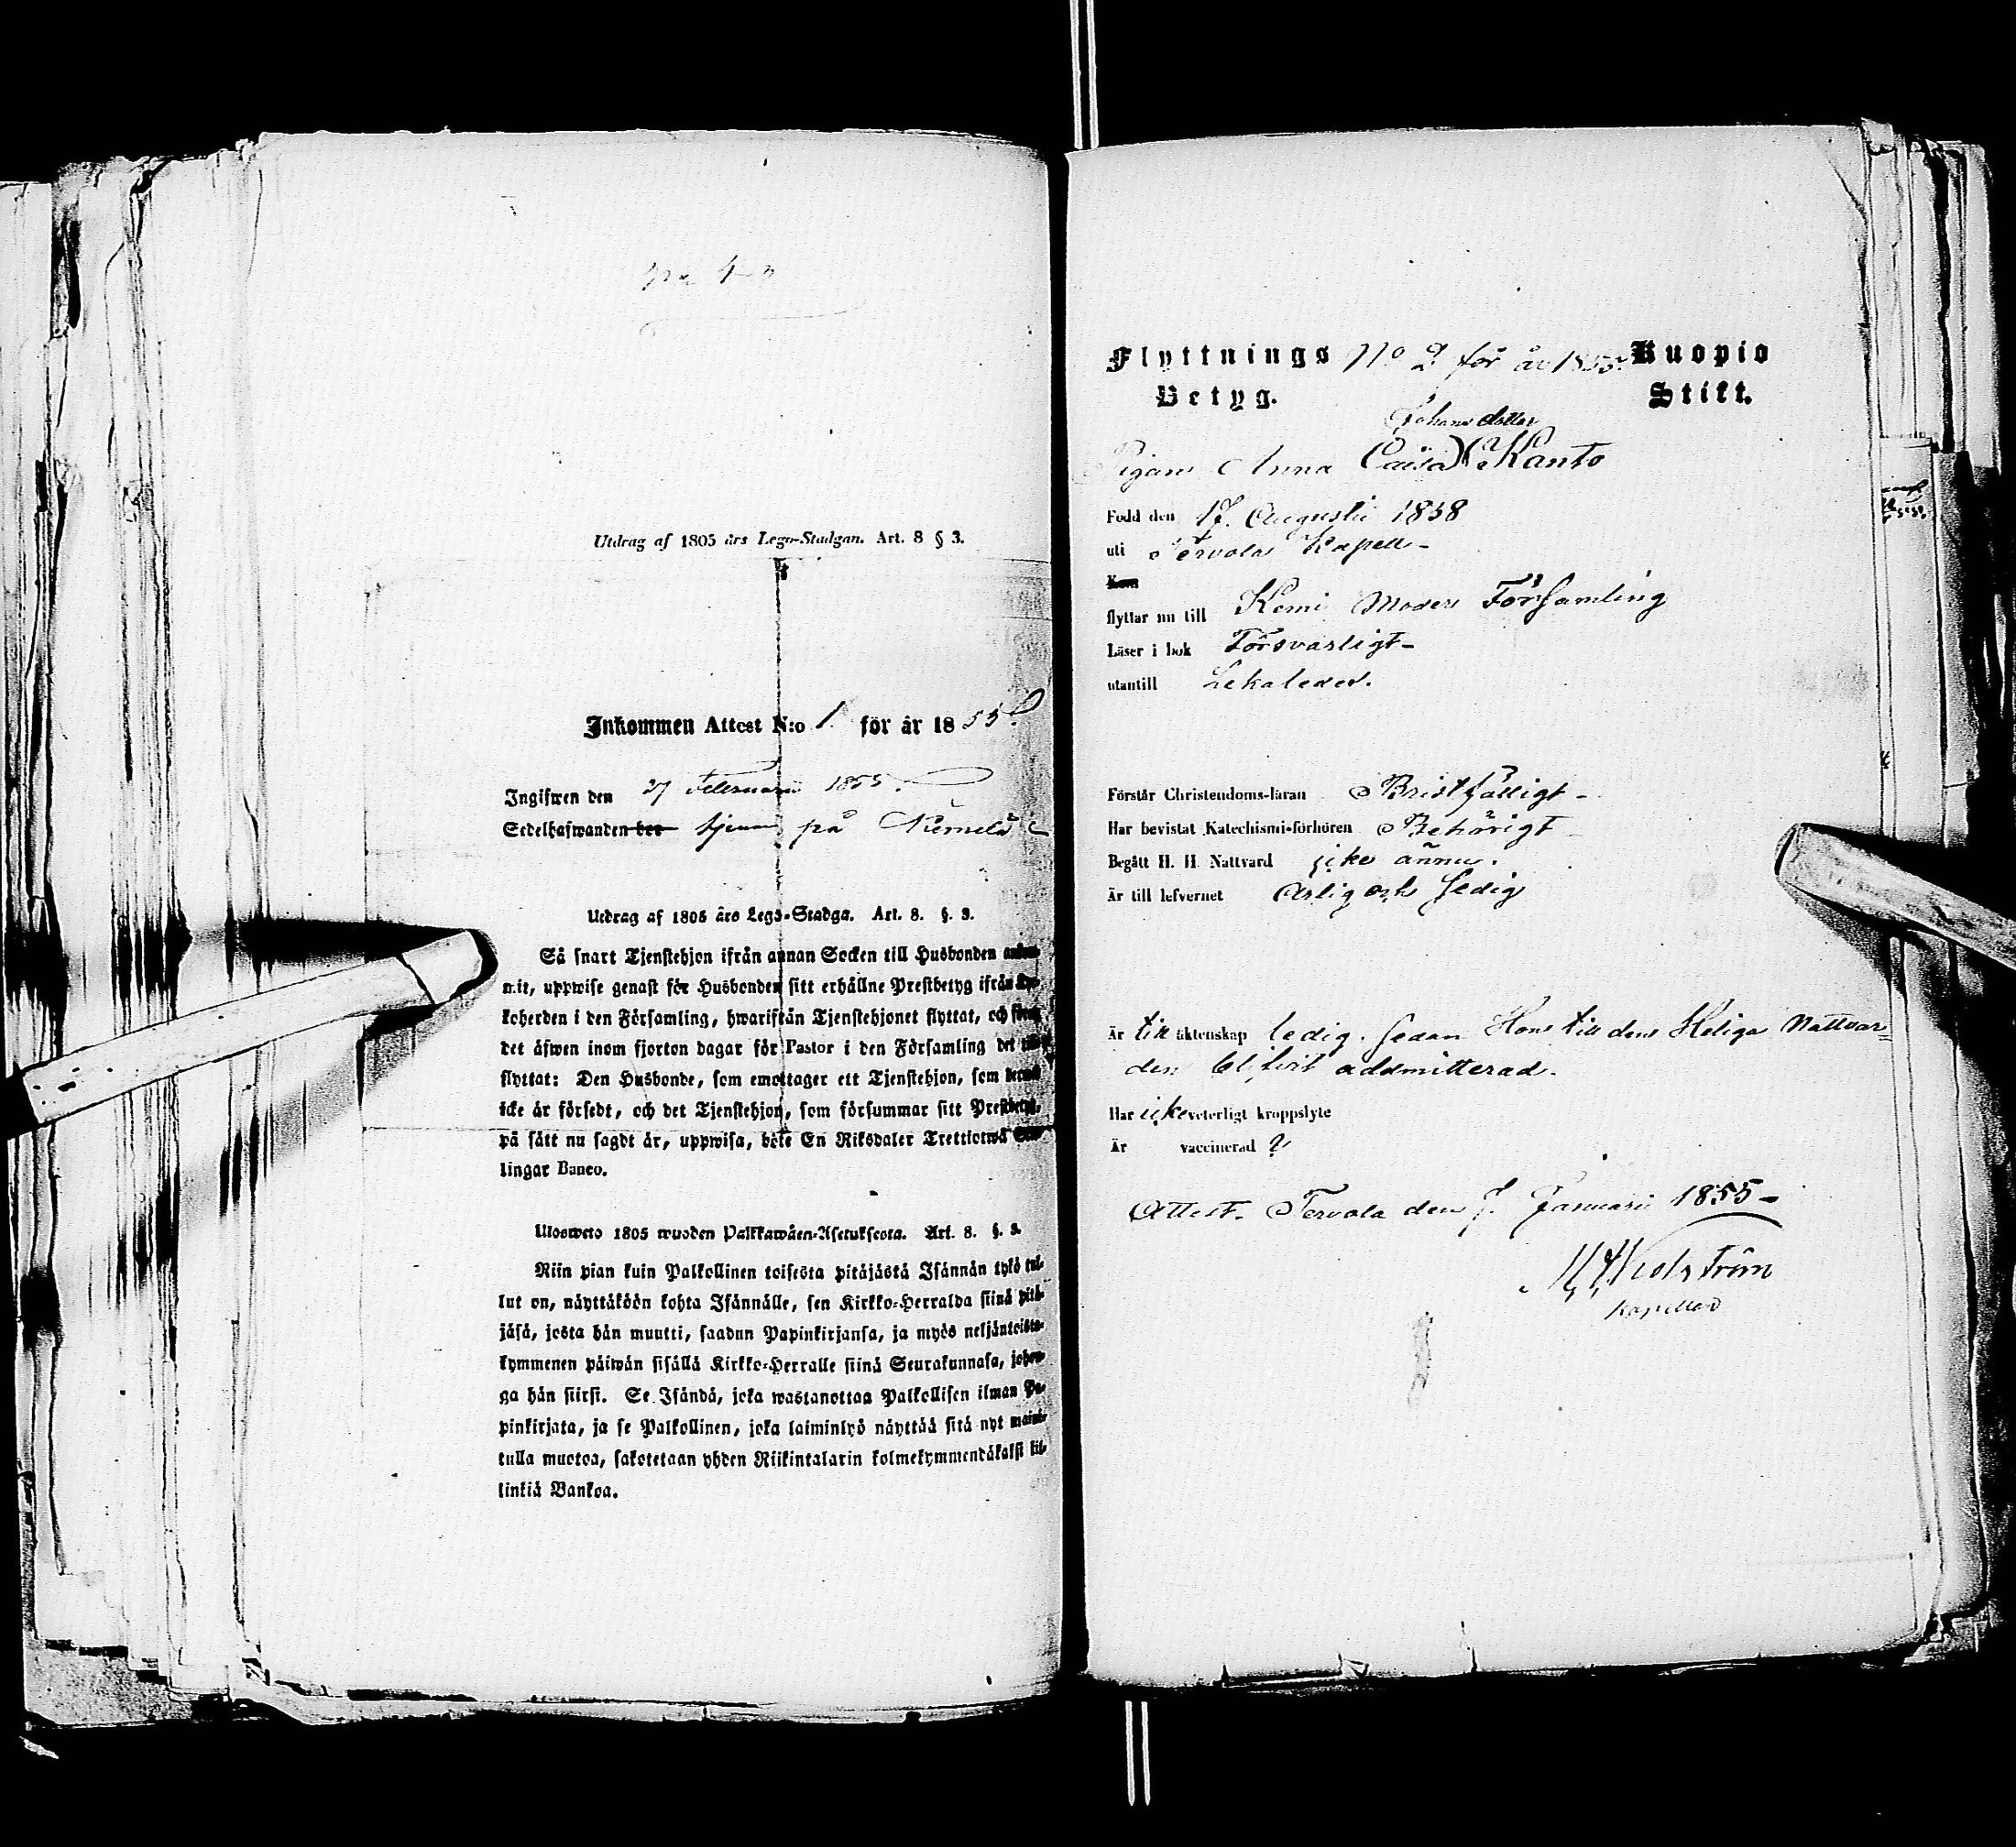 Utdrag af 1805 års Lego-Stadgan. Art. 8 § 3.
Inkommen Attest N:o 1. för år 1855.
Ingifwen den 27 Februarii 1855.
Sedelhafwanden bor tjenar på Niemelä
Utdrag af 1805 års Lego-Stadga. Art. 8. §. 3.
Så snart Tjenstehjon ifrån annan Socken till Husbonden ankom-
mit, uppwise genast för Husbonden sitt erhållne Prestbetyg ifrån Kyr-
koherden i den Församling, hwarifrån Tjenstehjonet flyttat, och
det äfwen inom fjorton dagar för Pastor i den Församling det
flyttat: Den Husbonde, som emottager ett Tjenstehjon, som dermed
icke är försedt, och det Tjenstehjon, som försummar sitt Prestbetyg,
på sätt nu sagdt är, uppwisa, böte En Riksdaler Trettiotwå Skil-
lingar Banco.
Ulosweto 1805 wuoden Palkkawäen-Asetuksesta. Art. 8. §. 3.
Niin pian kuin Palkollinen toisesta pitäjästä Isännän tykö tul-
lut on, näyttäköön kohta Isännälle, sen Kirkko-Herralda siinä pitä-
jäsä, josta hän muutti, saadun Papinkirjansa, ja myös neljäntoista-
kymmenen päiwän sisällä Kirkko-Herralle siinä Seurakunnasa, johon-
ga hän siirsi. Se Isändä, joka wastanottaa Palkollisen ilman Pa-
pinkirjata, ja se Palkollinen, joka laiminlyö näyttää sitä nyt maini-
tulla muotoa, sakotetaan yhden Riikintalarin kolmekymmendäkaksi kil-
linkiä Bankoa.
Flyttnings No 2 för år 1855. Kuopio
Betyg. Stift.
Johansdotter
Pigan Anna Caisa Kanto
Född den 17. Augusti 1838
uti Tervola Kapell-
Kom
flyttar nu till Kemi Moder Församling
Läser i bok Försvarligt-
utantill Lekaledes.
Förstår Christendoms-läran Bristfälligt-
Har bevistat Katechismi-förhören Behörigt
Begått H. H. Nattvard icke ännu.
Är till lefvernet Ärlig och sedig
Är till äktenskap ledig. sedan Hon till den Heliga Nattvar=
den blifvit addmitterad.
Har icke veterligt kroppslyte
Är vaccinerad ?
Attest. Tervola den 7. Januarii 1855-